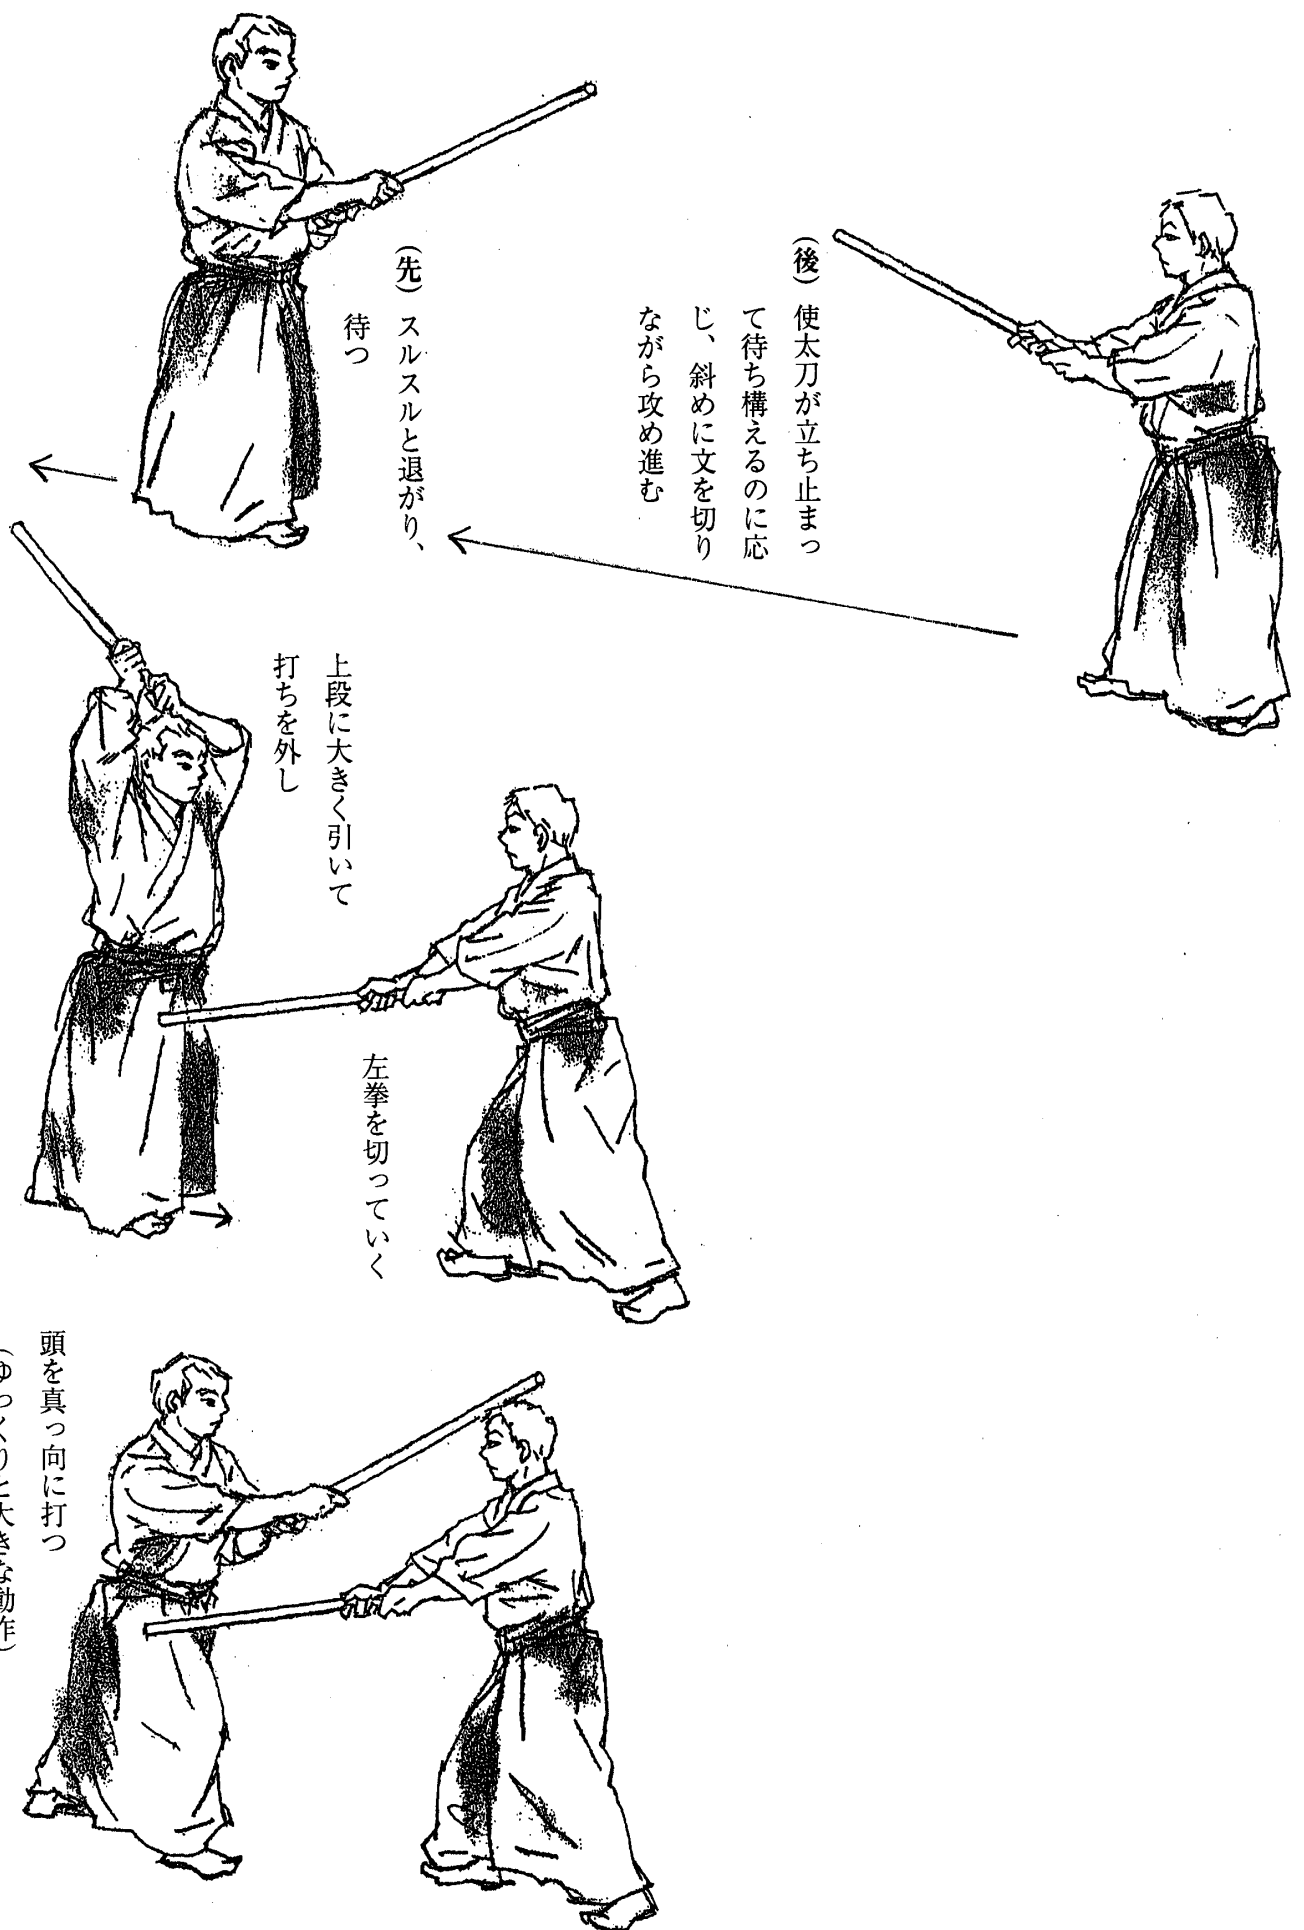 (後) 使太刀が立ち止まっ
て待ち構えるのに応
じ、斜めに文を切り
ながら攻め進む
(先) スルスルと退がり、
待つ
上段に大きく引いて
打ちを外し
左拳を切っていく
頭を真っ向に打つ
(ゆっくりと大きな動作)